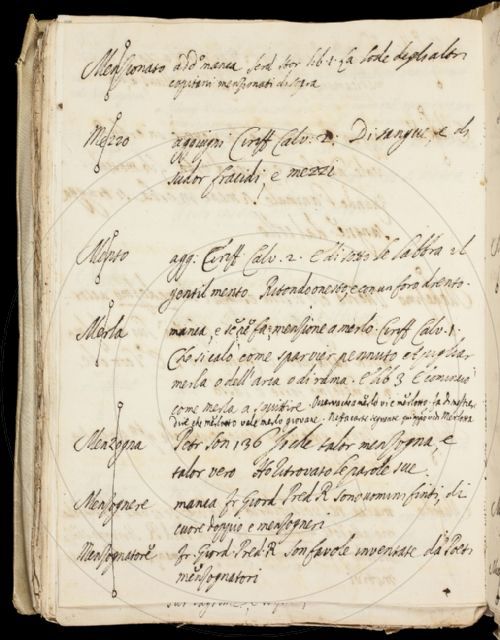 Menzionato add.o manca Serd Stor lib. 1. La lode degli altri
capitani menzionati di sopra
Mezzo aggiugni Ciriff Calv. 2. Di sangue, e di
sudor fracidi, e mezzi
Mento agg. Ciriff Calv. 2. E di sotto le labbra il
gentil mento. Ritondo onesto, e con un foro drento.
Merla manca, e se ne fa menzione a merlo. Ciriff Calv. 1.
Che si calò come sparvier pennuto
merla o dell' area o di rama. E lib 3 E cominciò
come merla a squittire.
vale merlo giovane.
Menzogna Petr Son 136 talor menzogna, e
talor vero Ho ritrovato le parole sue.
Menzognere manca Fr Giord Pred R Sono uomini finti, di
cuore doppio e menzogneri
Menzognatore Fr Giord Pred R Son favole inventate da Poeti
menzognatori